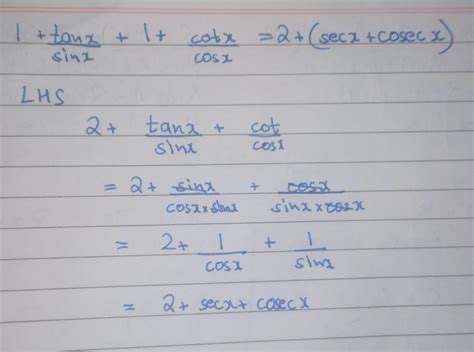 1 + tanx/sinx + 1 + cotx/cosx = 2 + (secx + cosec x)
LHS
2 + tanx/sinx + cot/cosx
= 2 + sinx/cosx x sinx + cosx/sinx x cosx
= 2 + 1/cosx + 1/sinx
= 2 + secx + cosecx